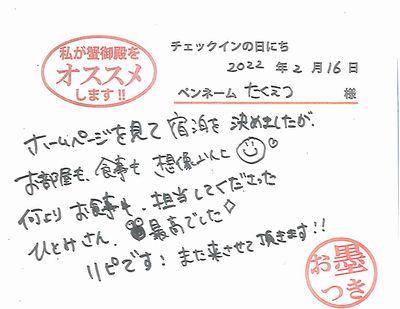 私が蟹御殿を
オススメ
します!!
チェックインの日にち
2022 年 2 月 16 日
ペンネーム たくみつ 様
ホームページを見て宿泊を決めましたが、
お部屋も、食事も想像以上に
何よりお食事も、担当してくださった
ひとみさん、最高でした
リピです! また来させて頂きます!!
お墨
つき